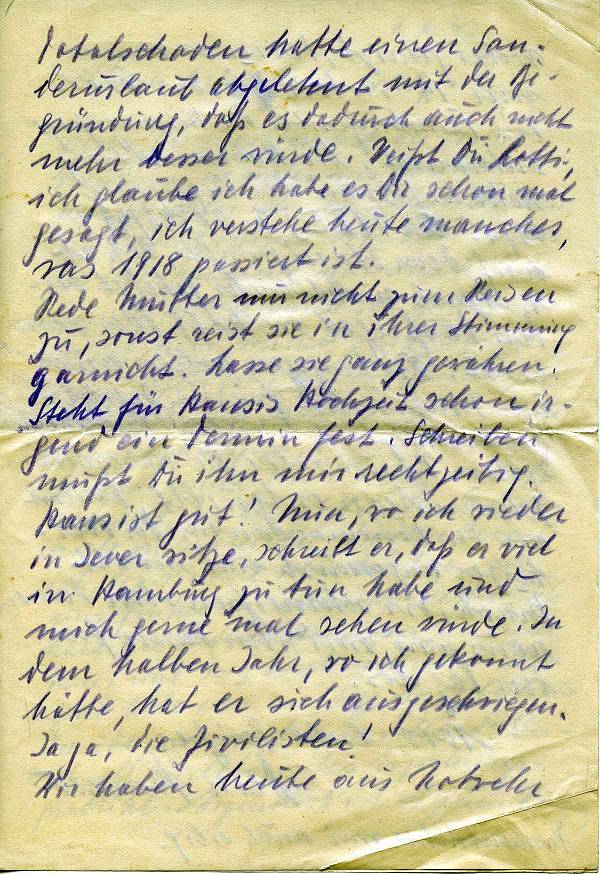 Totalschaden hatte einen Son-
derurlaub abgelehnt mit der Be-
gründung, daß es dadurch auch nicht
mehr besser würde. Weißt Du Lotti,
ich glaube ich habe es Dir schon mal
gesagt, ich verstehe heute manches,
was 1918 passiert ist.
Rede Mutter nur nicht zum Reisen
zu, sonst reist sie in ihrer Stimmung
garnicht. Lasse sie ganz gewähren.
Steht für Hansis Hochzeit schon ir-
gend ein Termin fest. Schreiben
mußt Du ihn mir rechtzeitig.
Hans ist gut! Nun, wo ich wieder
in Jever sitze, schreibt er, daß er viel
in Hamburg zu tun habe und
mich gerne mal sehen würde. In
dem halben Jahr, wo ich gekonnt
hätte, hat er sich ausgeschwiegen.
Ja ja, die Zivilisten!
Wir haben heute aus